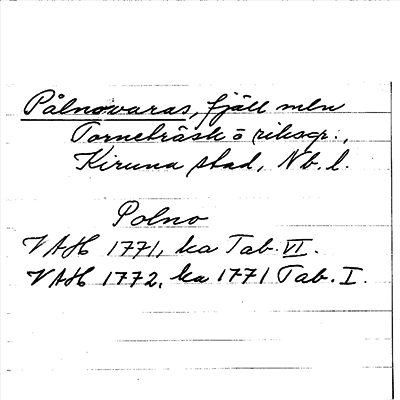 Pålnovaras, fjäll mln
Torneträsk o riksgr.,
Kiruna stad, Nb. l.
Polno
VAH 1771, ka Tab. VI.
VAH 1772, ka 1771 Tab. I.